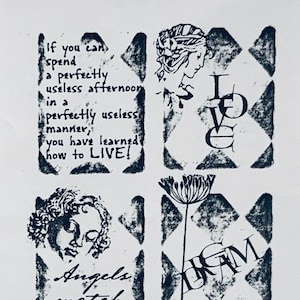 If you can
spend
a perfectly
useless afternoon
in a
perfectly useless
manner,
you have learned
how to LIVE!
LOVE
Angels